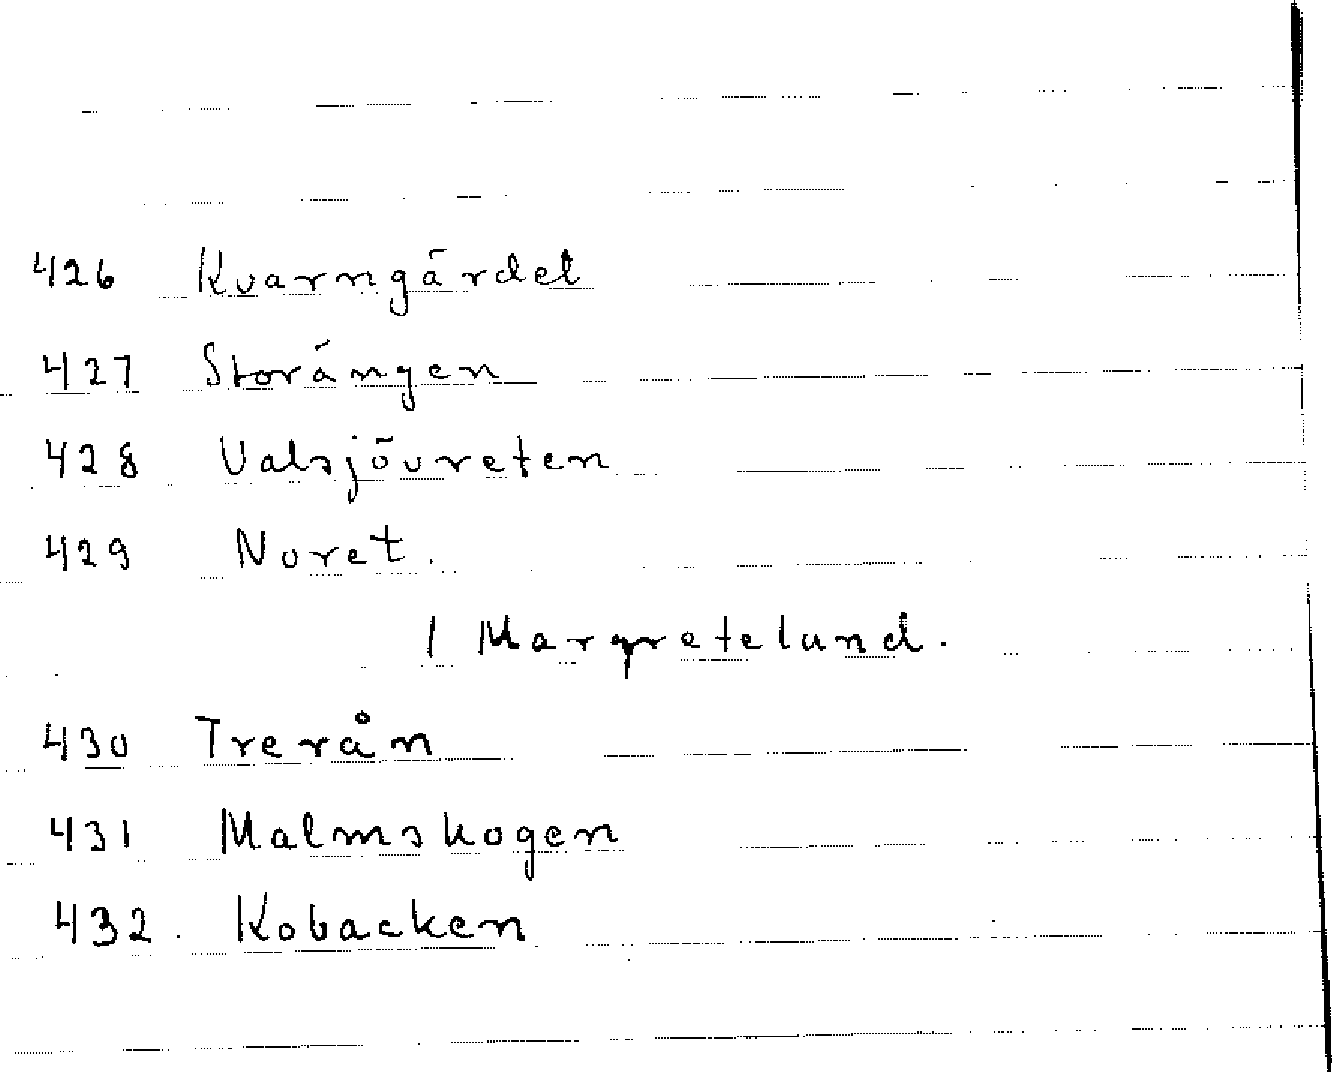 426 Kvarngärdet
427 Storängen
428 Valsjövreten
429 Noret.
I Margretelund.
430 Trerån
431 Malmskogen
432. Kobacken